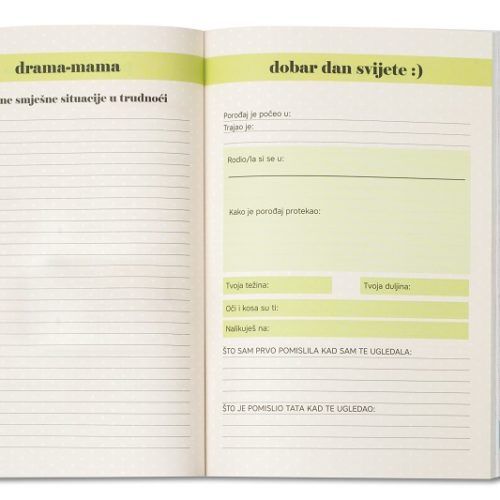 drama-mama
ne smješne situacije u trudnoći
dobar dan svijete :)
Porođaj je počeo u:
Trajao je:
Rodio/la si se u:
Kako je porođaj protekao:
Tvoja težina:
Tvoja duljina:
Oči i kosa su ti:
Nalikuješ na:
ŠTO SAM PRVO POMISLILA KAD SAM TE UGLEDALA:
ŠTO JE POMISLIO TATA KAD TE UGLEDAO: